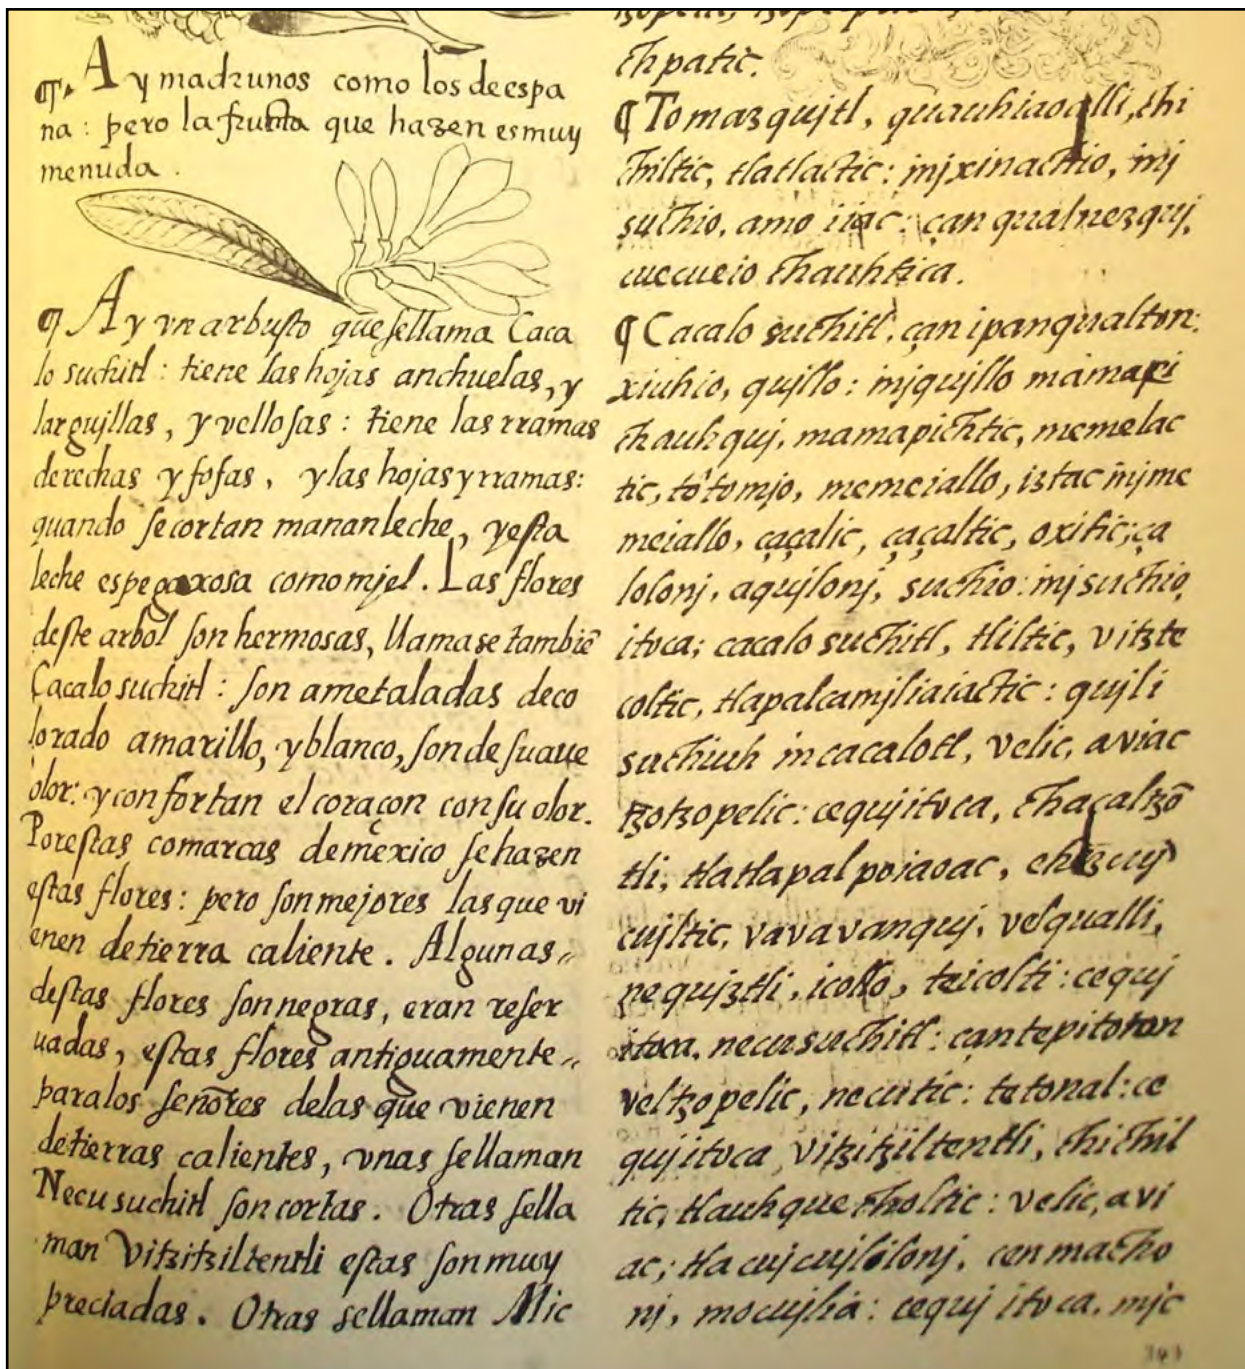 ¶ Ay madrunos como los de espa
na: pero la fruta que hazen es muy
menuda.
¶ Ay vn arbusto que se llama Caca
lo suchitl: tiene las hojas anchuelas, y
larguillas, y vellosas: tiene las rramas
derechas y fofas, y las hojas y rramas:
quando se cortan manan leche, y esta
leche es pegaxosa como mjel. Las flores
deste arbol son hermosas, llamase tambiē
Cacalo suchitl: son ametaladas de co
lorado amarillo, y blanco, son de suaue
olor: y confortan el coraçon con su olor.
Por estas comarcas de mexico se hazen
estas flores: pero son mejores las que vi
enen de tierra caliente. Algunas
destas flores son negras, eran reser
uadas, estas flores antiguamente
para los señores de las que vienen
de tierras calientes, vnas se llaman
Necu suchitl son cortas. Otras se lla
man Vitzitziltentli estas son muy
preciadas. Otras se llaman Mic
chpatic.
¶ Tomazqujtl, quauhiaoalli, chi
chiltic, tlatlactic: injxinachio, inj
suchio, amo iiac: çan qualnezquj,
cuecueio chauhtica.
¶ Cacalo suchitl, çan ipanqualton:
xiuhio, quillo: injqujllo mamapi
chauhquj, mamapichtic, memelac
tic, tôtomjo, memeiallo, iztac injme
meiallo, çaçalic, çaçaltic, oxitic; ça
lolonj, aqujlonj, suchio: inj suchio,
itoca; cacalo suchitl, tliltic, vitzte
coltic, tlapalcamjliaiactic: qujli
suchiuh in cacalotl, velic, aviac
tzotzopelic: cequj itoca, chacaltzō
tli, tlatlapalpoiaoac,
cujltic, vavavanquj, velqualli,
nequjztli, icollo, teicolti: cequj
itoca, necusuchitl: çantepitoton
veltzopelic, necutic: tetonal: ce
quj itoca vitzitziltentli, chichil
tic, tlauhquecholtic: velic, avi
ac; tlacujcujlolonj, cenmacho
nj, mocujlia: cequj itoca, mjc